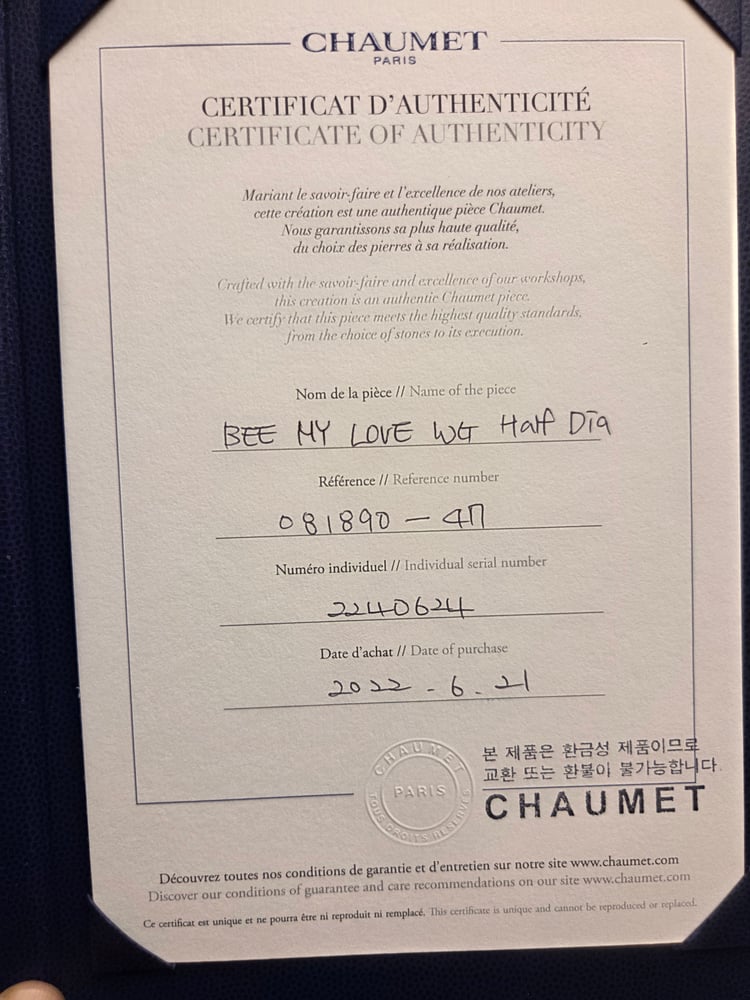 CHAUMET
PARIS
CERTIFICAT D'AUTHENTICITÉ
CERTIFICATE OF AUTHENTICITY
Mariant le savoir-faire et l'excellence de nos ateliers,
cette création est une authentique pièce Chaumet.
Nous garantissons sa plus haute qualité,
du choix des pierres à sa réalisation.
Crafted with the savoir-faire and excellence of our workshops,
this creation is an authentic Chaumet piece.
We certify that this piece meets the highest quality standards,
from the choice of stones to its execution.
Nom de la pièce // Name of the piece
BEE MY LOVE WG Half Dia
Référence // Reference number
081890 - 47
Numéro individuel // Individual serial number
2240624
Date d'achat // Date of purchase
2022 - 6 - 21
CHAUMET
PARIS
TOUS DROITS RÉSERVÉS
본 제품은 환금성 제품이므로
교환 또는 환불이 불가능합니다.
CHAUMET
Découvrez toutes nos conditions de garantie et d'entretien sur notre site www.chaumet.com
Discover our conditions of guarantee and care recommendations on our site www.chaumet.com
Ce certificat est unique et ne pourra être ni reproduit ni remplacé. This certificate is unique and cannot be reproduced or replaced.